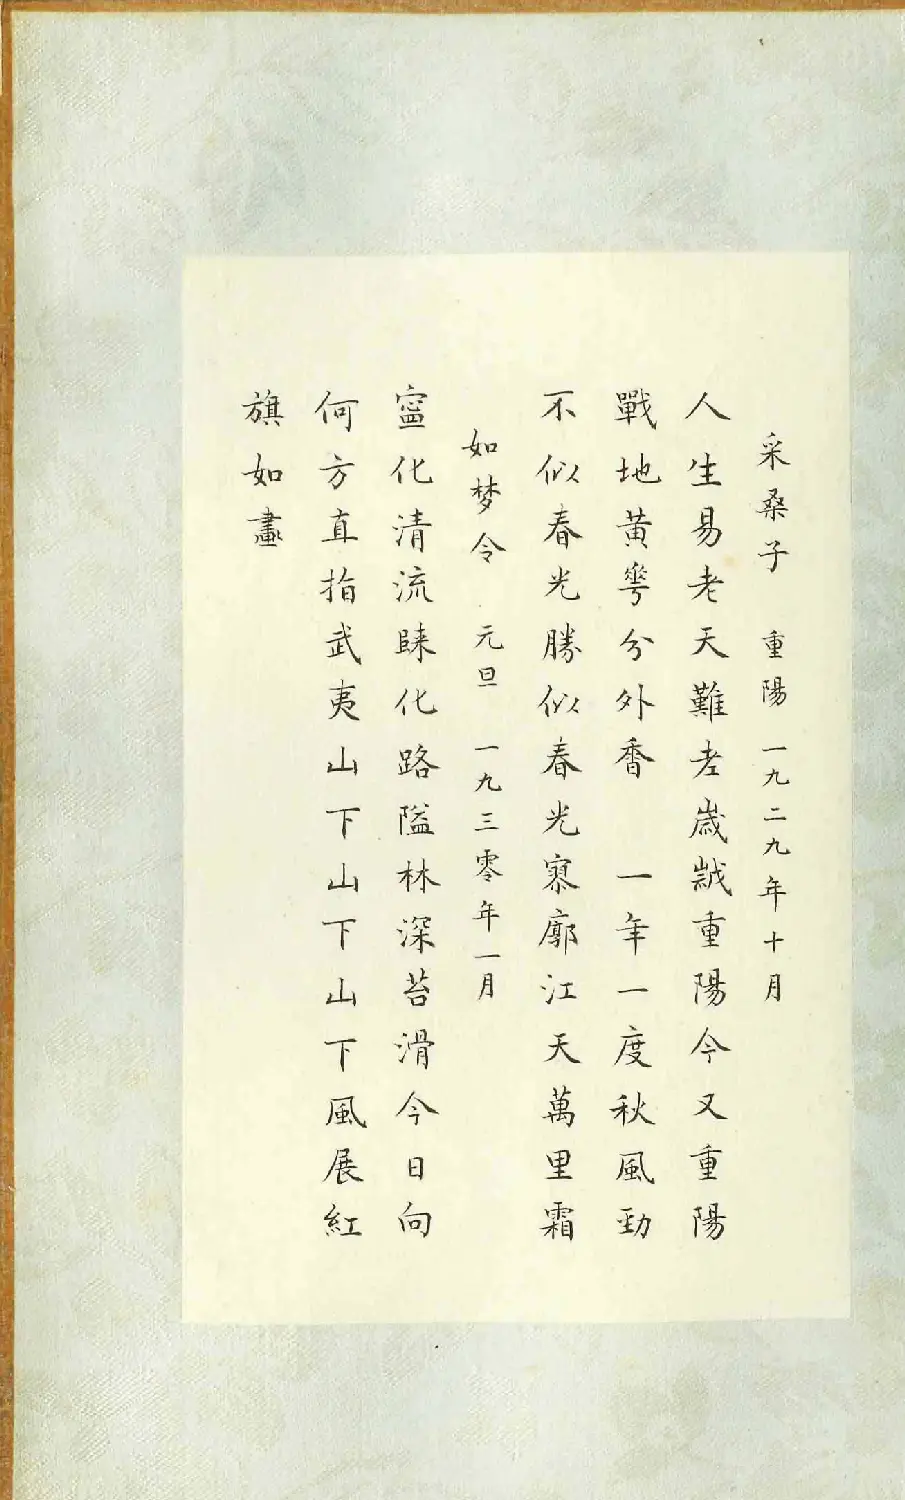 采桑子 重陽 一九二九年十月
人生易老天難老歲歲重陽今又重陽
戰地黃蕚分外香 一年一度秋風勁
不似春光勝似春光寥廓江天萬里霜
如梦令 元旦 一九三零年一月
寍化清流歸化路隘林深苔滑今日向
何方直指武夷山下山下山下風展紅
旗如畫